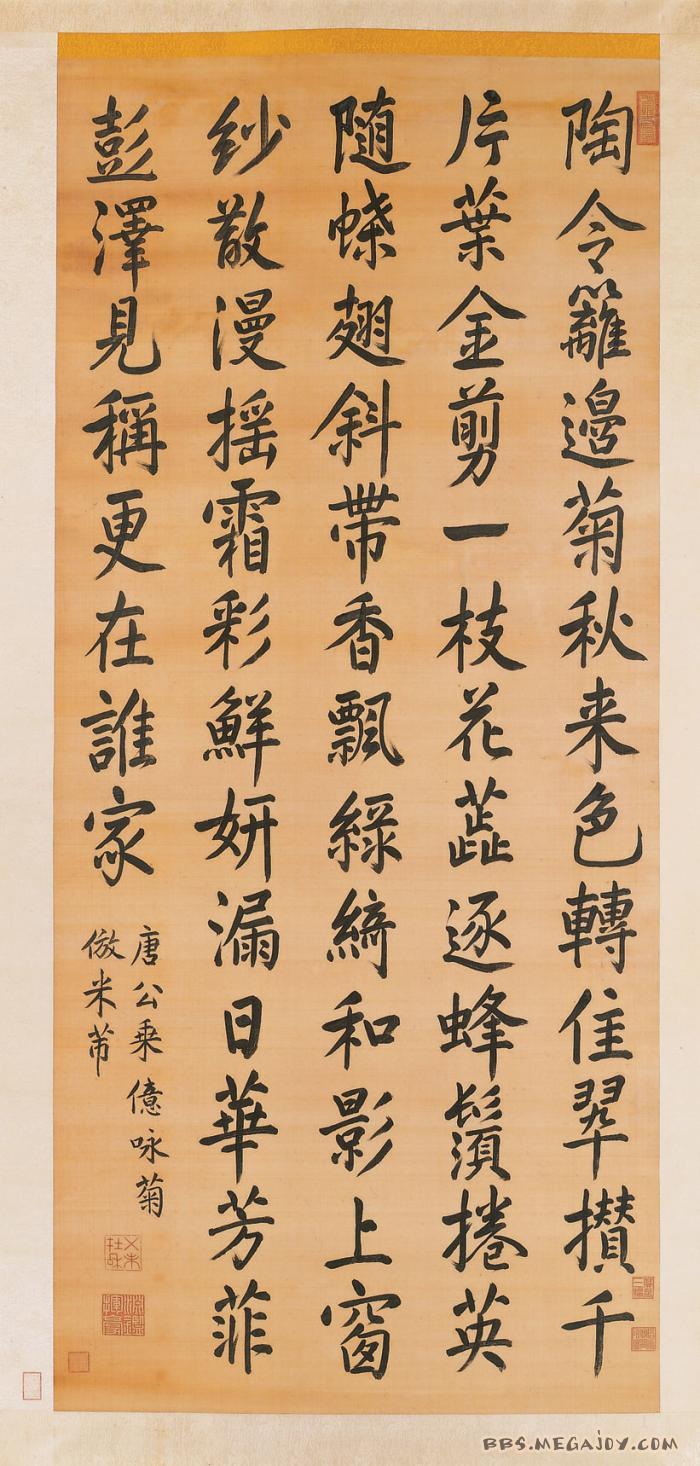 陶令籬邊菊秋来色轉佳翠攢千
片葉金剪一枝花蕋逐蜂鬚捲英
随蝶翅斜帶香飄緑綺和影上窗
紗散漫揺霜彩鮮妍漏日華芳菲
彭澤見稱更在誰家
唐公乗億咏菊
倣米芾
BBS.MEGAJOY.COM